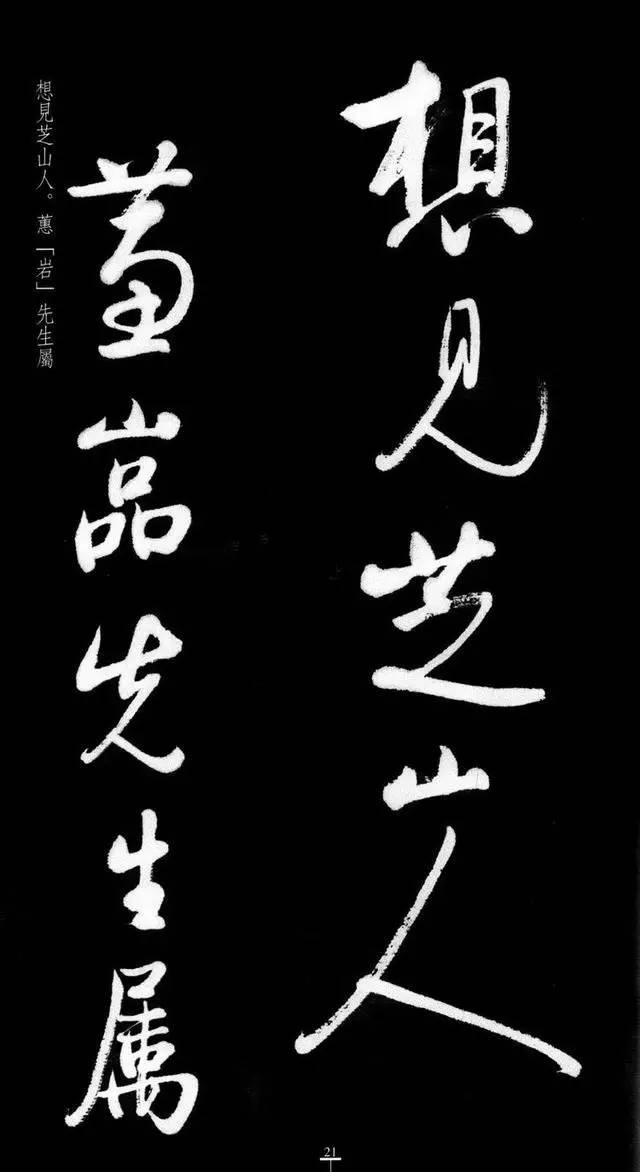 想見芝山人
蕙嵒先生属
想見芝山人。蕙「岩」先生屬
21